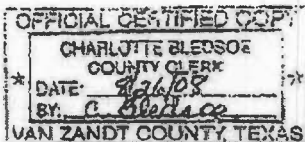 OFFICIAL CERTIFIED COPY
CHARLOTTE BLEDSOE
COUNTY CLERK
* DATE: *
BY: C. Bledsoe
VAN ZANDT COUNTY, TEXAS